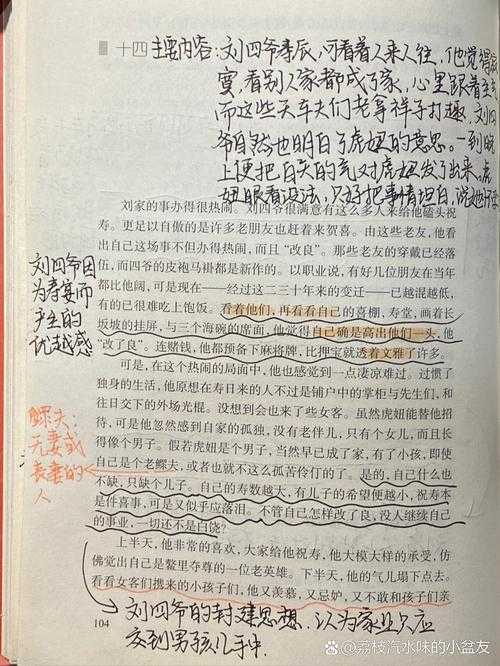 十四 主要内容：刘四爷寿辰，可看着人来人往，他觉得寂
寞，看别人家都成了家，心里跟着生气
而这些天车夫们老拿祥子打趣，刘四
爷自然也明白了虎妞的意思。一到晚
上便把白天的气对虎妞发了出来。虎
妞眼看没法，只好把事情坦白，说她
刘家的事办得很热闹。刘四爷很满意有这么多人来给他磕头祝
寿。更足以自傲的是许多老朋友也赶着来贺喜。由这些老友，他看
出自己这场事不但办得热闹，而且“改良”。那些老友的穿戴已经落
伍，而四爷的皮袍马褂都是新作的。以职业说，有好几位朋友在当年
都比他阔，可是现在——经过这二三十年来的变迁——已越混越低，
有的已很难吃上饱饭。看着他们，再看看自己的喜棚，寿堂，画着长
坂坡的挂屏，与三个海碗的席面，他觉得自己确是高出他们一头，他
“改了良”。连赌钱，他都预备下麻将牌，比押宝就透着文雅了许多。
可是，在这个热闹的局面中，他也感觉到一点凄凉难过。过惯了
独身的生活，他原想在寿日来的人不过是铺户中的掌柜与先生们，和
往日交下的外场光棍。没想到会也来了些女客。虽然虎妞能替他招
待，可是他忽然感到自家的孤独，没有老伴儿，只有个女儿，而且长
得像个男子。假若虎妞是个男子，当然早已成了家，有了小孩，即使
自己是个老鳏夫，或者也就不这么孤苦伶仃的了。是的，自己什么也
不缺，只缺个儿子。自己的寿数越大，有儿子的希望便越小，祝寿本
是件喜事，可是又似乎应落泪。不管自己怎样改了良，没人继续自己
的事业，一切还不是白饶？
上半天，他非常的喜欢，大家给他祝寿，他大模大样的承受，仿
佛觉出自己是鳌里夺尊的一位老英雄。下半天，他的气儿塌下点去。
看看女客们携来的小孩子们，他又羡慕，又忌妒，又不敢和孩子们亲
刘四爷因
为寿宴而
产生的
优越感
鳏夫：
无妻或
丧妻的
人
刘四爷的封建思想，认为家业只应
交到男孩儿手中
104
知乎 @荔枝汽水味的小盆友